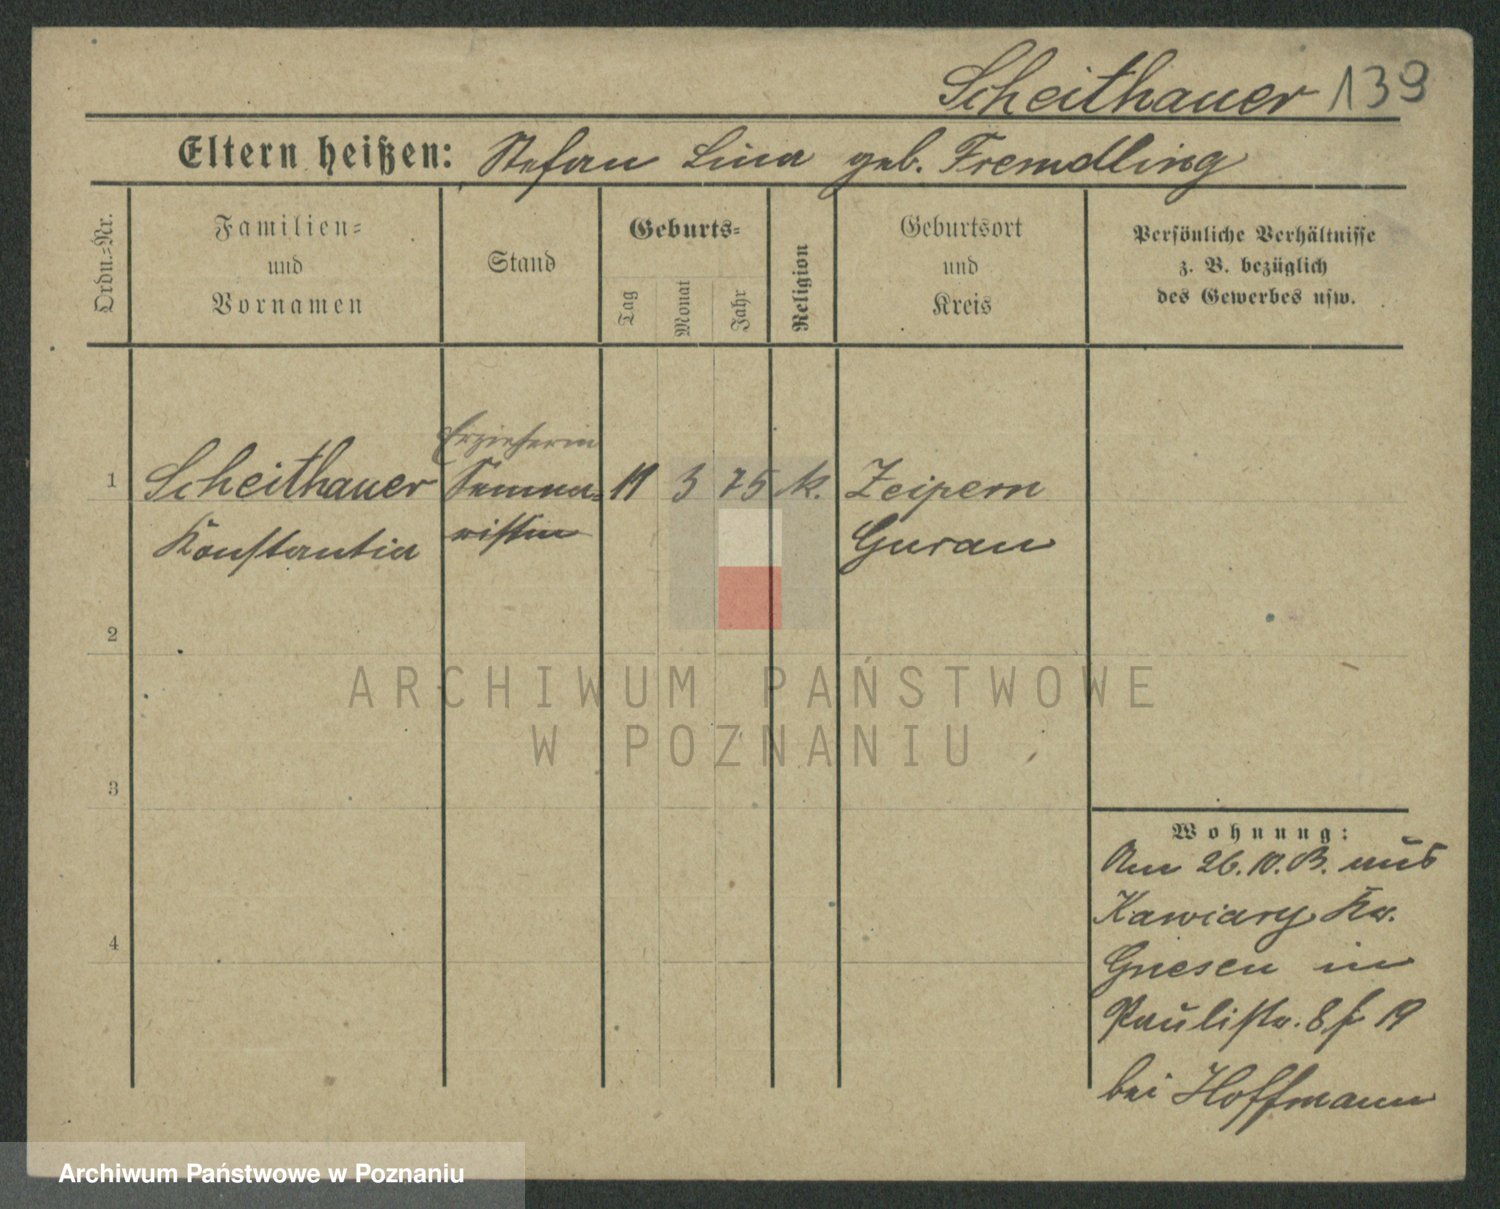 Scheithauer 139
Eltern heißen: Stefan Lina geb. Fremdling
Ordn.=Nr.
Familien=
und
Vornamen
Stand
Geburts=
Tag
Monat
Jahr
Religion
Geburtsort
und
Kreis
Persönliche Verhältnisse
z. B. bezüglich
des Gewerbes usw.
Erzieherin
1 Scheithauer Semina= 19 3 75 k. Zeipern
Konstantia ristin Gurau
2
3
4
Wohnung:
Am 26.10.13. aus
Kawiary Kr.
Gnesen in
Paulistr. 8 19
bei Hoffmann
ARCHIWUM PAŃSTWOWE
W POZNANIU
Archiwum Państwowe w Poznaniu